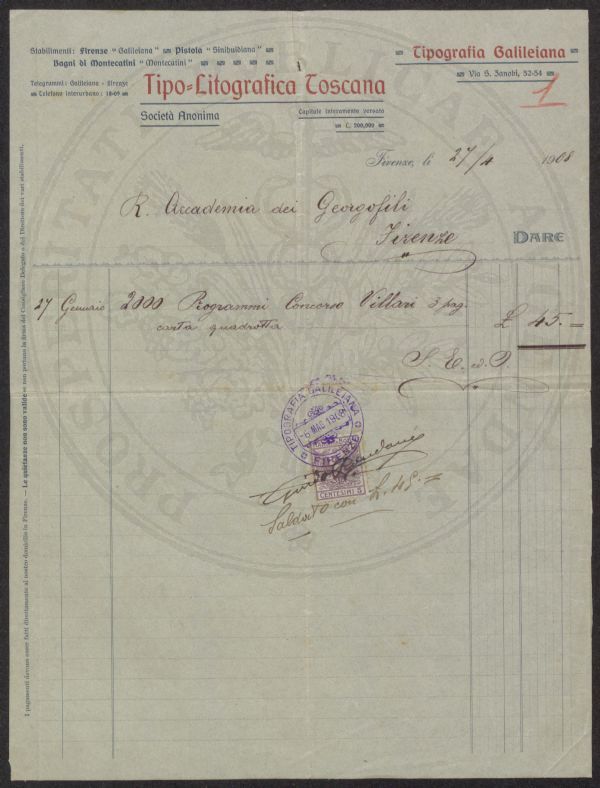 Stabilimenti: Firenze "Galileiana" Pistoia "Sinibuldiana"
Bagni di Montecatini "Montecatini"
Telegrammi: Galileiana - Firenze
Telefono interurbano: 18-09
Tipografia Galileiana
Via S. Zanobi, 52-54
1
Tipo=Litografica Toscana
Società Anonima
Capitale interamente versato
L. 200,000
Firenze, li 27/4 1908
R. Accademia dei Georgofili
Firenze
DARE
27 Gennaio 2000 Programmi Concorso Villari 3 pag. £ 45.=
carta quadrotta
S. E. e. O.
TIPOGRAFIA GALILEIANA
6 MAG 1908
FIRENZE
CENTESIMI 5
Guido
Saldato con L. 45. =
I pagamenti devono esser fatti direttamente al nostro domicilio in Firenze. — Le quietanze non sono valide se non portano la firma del Consigliere Delegato o del Direttore dei vari stabilimenti.